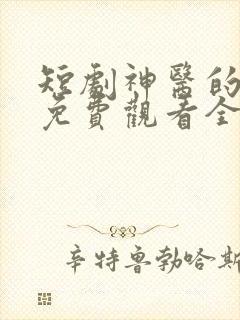 短劇神醫的
免費觀看全
辛特魯勃哈斯